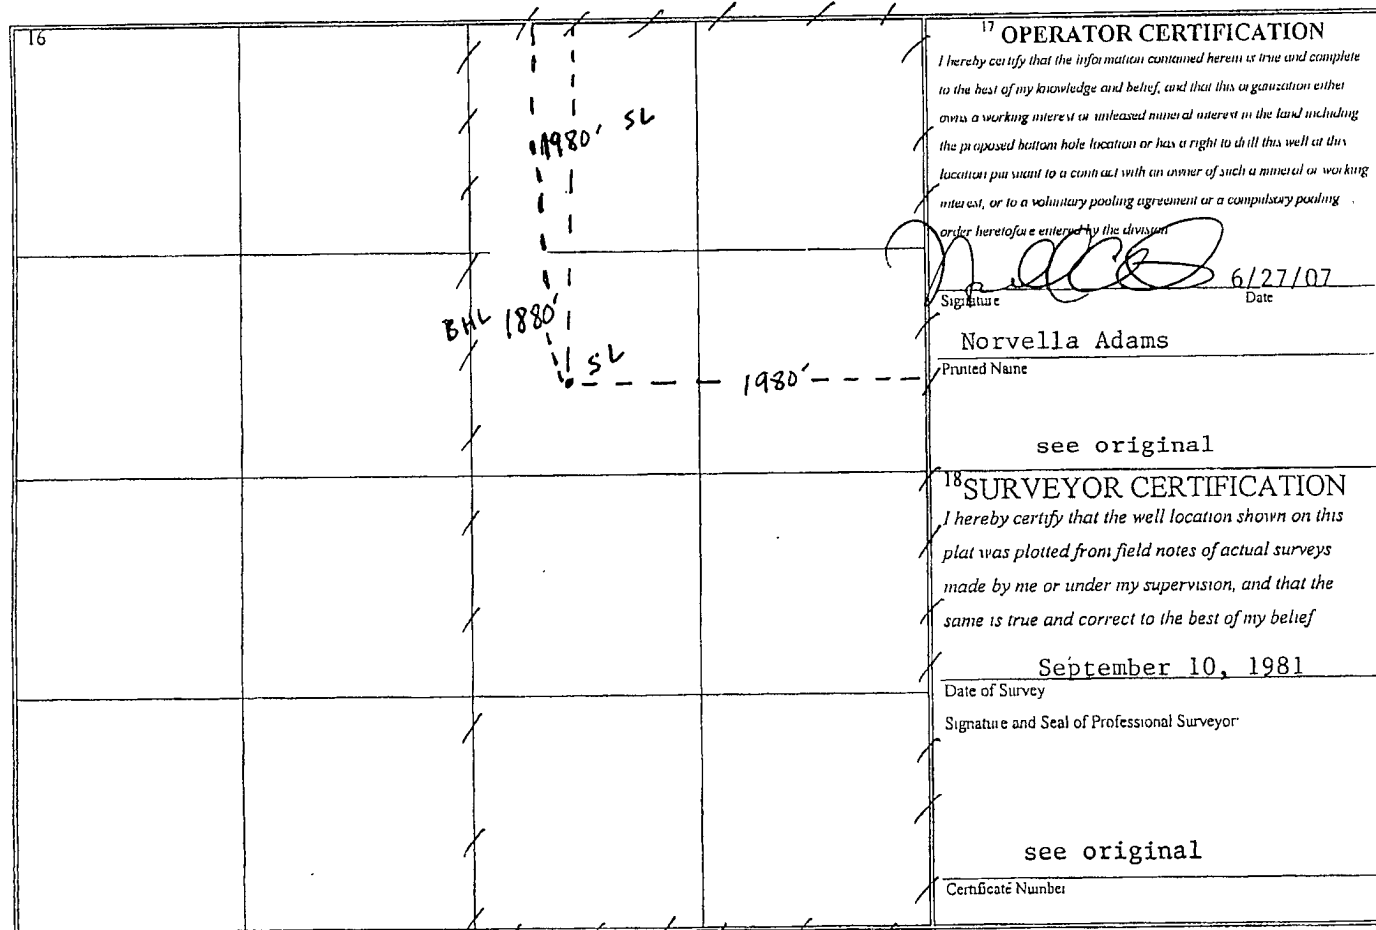 16
1980' SL
BHL 1880'
SL
1980'
17 OPERATOR CERTIFICATION
I hereby certify that the information contained herein is true and complete
to the best of my knowledge and belief, and that this organization either
owns a working interest or unleased mineral interest in the land including
the proposed bottom hole location or has a right to drill this well at this
location pursuant to a contract with an owner of such a mineral or working
interest, or to a voluntary pooling agreement or a compulsory pooling
order heretofore entered by the division
6/27/07
Signature Date
Norvella Adams
Printed Name
see original
18 SURVEYOR CERTIFICATION
I hereby certify that the well location shown on this
plat was plotted from field notes of actual surveys
made by me or under my supervision, and that the
same is true and correct to the best of my belief
September 10, 1981
Date of Survey
Signature and Seal of Professional Surveyor
see original
Certificate Number